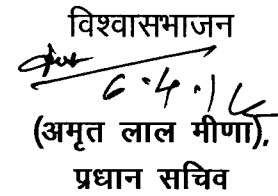 विश्वासभाजन
6.4.16
(अमृत लाल मीणा),
प्रधान सचिव